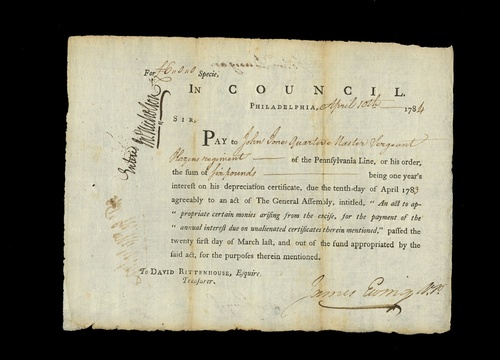 For £6..0..0 Specie.
IN COUNCIL.
PHILADELPHIA, April 10th 1784
SIR,
PAY to John Jones Quarter Master Sergeant
Hazens regiment of the Pennsylvania Line, or his order,
the sum of Six pounds being one year's
interest on his depreciation certificate, due the tenth-day of April 1783
agreeably to an act of The General Assembly, intitled, "An act to ap-
"propriate certain monies arising from the excise, for the payment of the
"annual interest due on unalienated certificates therein mentioned," passed the
twenty first day of March last, and out of the fund appropriated by the
said act, for the purposes therein mentioned.
To DAVID RITTENHOUSE, Esquire.
Treasurer.
James Ewing V.P.
Entered
Nicholson